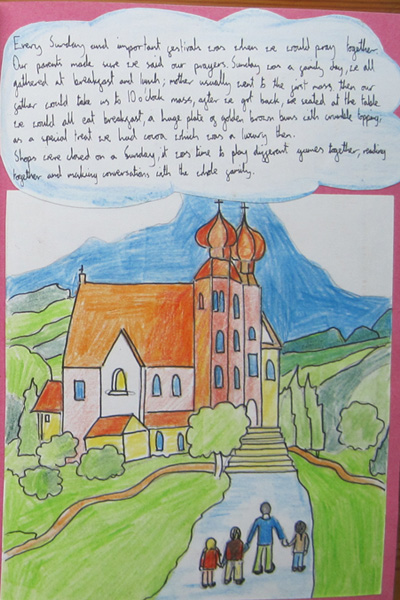 Every Sunday and important festivals was when we would pray together.
Our parents made sure we said our prayers. Sunday was a family day, we all
gathered at breakfast and lunch; mother usually went to the first mass, then our
father would take us to 10 o'clock mass, after we got back, we seated at the table.
We would all eat breakfast, a huge plate of golden brown buns with crumble topping.
as a special treat we had cocoa which was a luxury then.
Shops were closed on a Sunday, it was time to play different games together, reading
together and making conversations with the whole family.